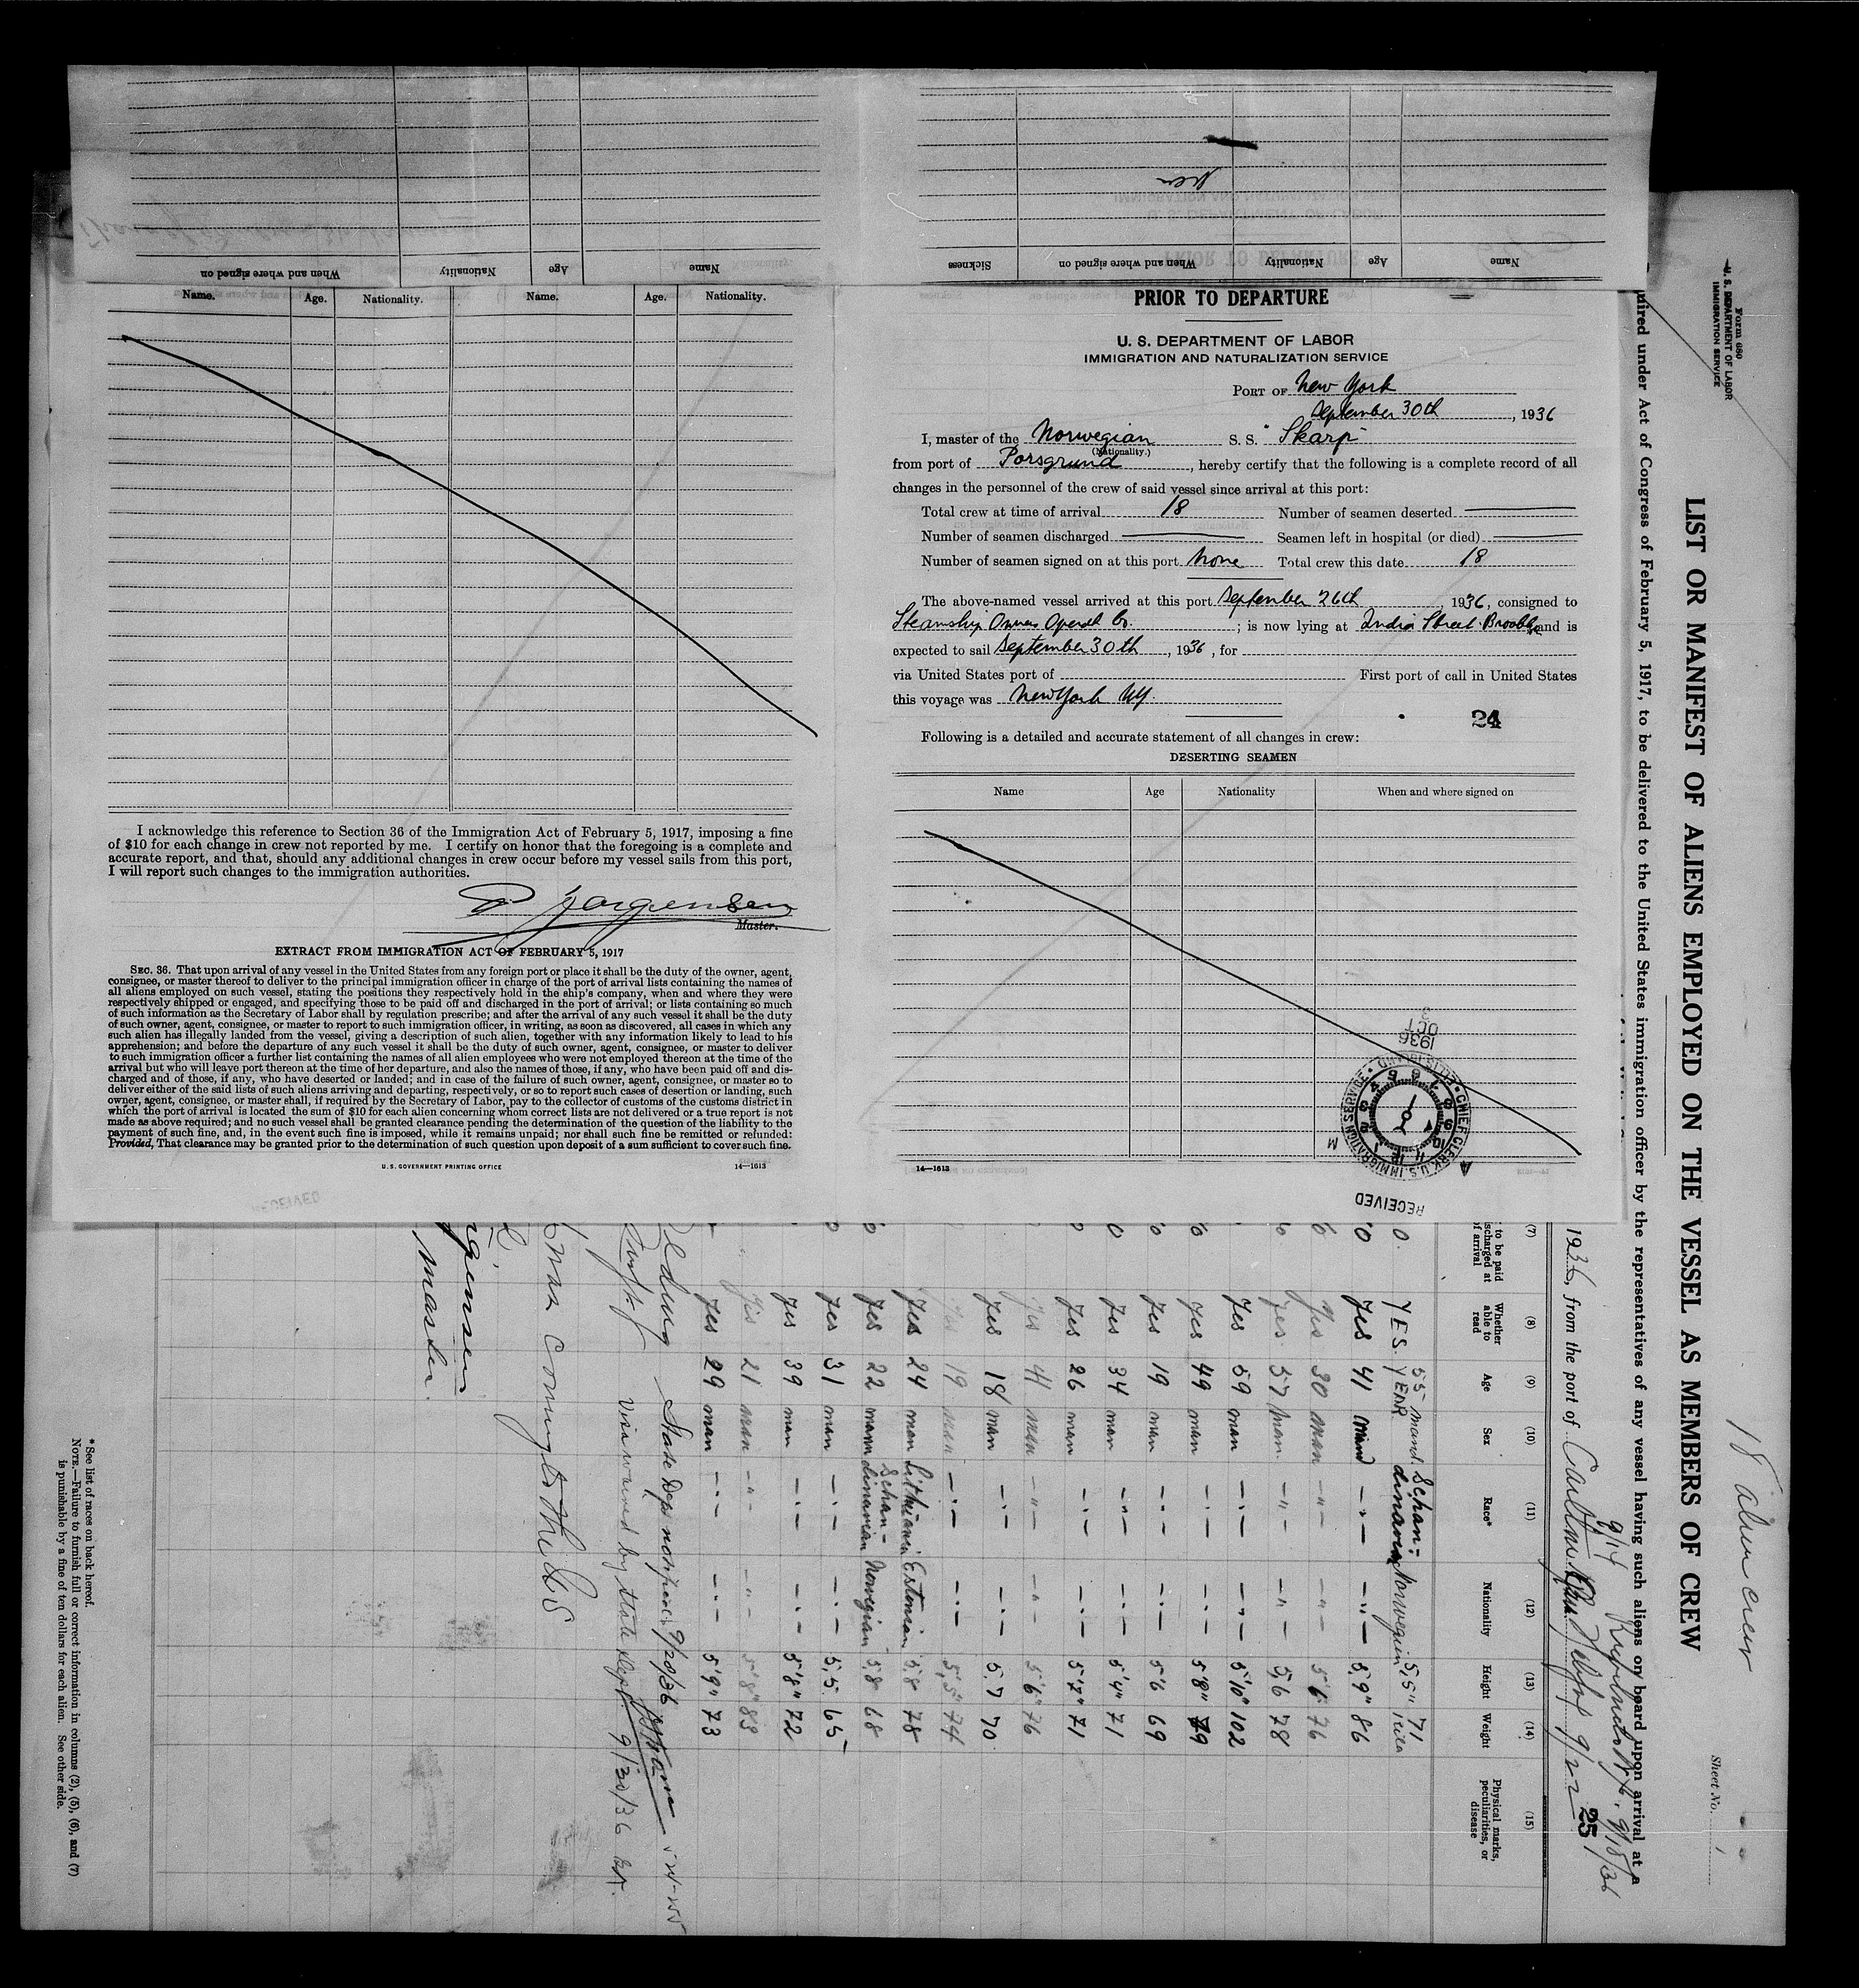 Name Age Nationality When and where signed on
Name Age Nationality When and where signed on Sickness
Name. Age. Nationality. Name. Age. Nationality.
I acknowledge this reference to Section 36 of the Immigration Act of February 5, 1917, imposing a fine
of $10 for each change in crew not reported by me. I certify on honor that the foregoing is a complete and
accurate report, and that, should any additional changes in crew occur before my vessel sails from this port,
I will report such changes to the immigration authorities.
Jorgensen
Master.
EXTRACT FROM IMMIGRATION ACT OF FEBRUARY 5, 1917
SEC. 36. That upon arrival of any vessel in the United States from any foreign port or place it shall be the duty of the owner, agent,
consignee, or master thereof to deliver to the principal immigration officer in charge of the port of arrival lists containing the names of
all aliens employed on such vessel, stating the positions they respectively hold in the ship's company, when and where they were
respectively shipped or engaged, and specifying those to be paid off and discharged in the port of arrival; or lists containing so much
of such information as the Secretary of Labor shall by regulation prescribe; and after the arrival of any such vessel it shall be the duty
of such owner, agent, consignee, or master to report to such immigration officer, in writing, as soon as discovered, all cases in which any
such alien has illegally landed from the vessel, giving a description of such alien, together with any information likely to lead to his
apprehension; and before the departure of any such vessel it shall be the duty of such owner, agent, consignee, or master to deliver
to such immigration officer a further list containing the names of all alien employees who were not employed thereon at the time of the
arrival but who will leave port thereon at the time of her departure, and also the names of those, if any, who have been paid off and dis-
charged and of those, if any, who have deserted or landed; and in case of the failure of such owner, agent, consignee, or master so to
deliver either of the said lists of such aliens arriving and departing, respectively, or so to report such cases of desertion or landing, such
owner, agent, consignee, or master shall, if required by the Secretary of Labor, pay to the collector of customs of the customs district in
which the port of arrival is located the sum of $10 for each alien concerning whom correct lists are not delivered or a true report is not
made as above required; and no such vessel shall be granted clearance pending the determination of the question of the liability to the
payment of such fine, and, in the event such fine is imposed, while it remains unpaid; nor shall such fine be remitted or refunded:
Provided, That clearance may be granted prior to the determination of such question upon deposit of a sum sufficient to cover such fine.
U. S. GOVERNMENT PRINTING OFFICE 14—1613
PRIOR TO DEPARTURE
U. S. DEPARTMENT OF LABOR
IMMIGRATION AND NATURALIZATION SERVICE
PORT OF New York
September 30th, 1936
I, master of the Norwegian S. S. "Skarp"
(Nationality.)
from port of Porsgrund, hereby certify that the following is a complete record of all
changes in the personnel of the crew of said vessel since arrival at this port:
Total crew at time of arrival 18 Number of seamen deserted
Number of seamen discharged Seamen left in hospital (or died)
Number of seamen signed on at this port None Total crew this date 18
The above-named vessel arrived at this port September 26th, 1936, consigned to
Steamship Owners Operat Co. ; is now lying at India Street Brookl and is
expected to sail September 30th, 1936, for
via United States port of First port of call in United States
this voyage was New York NY.
24
Following is a detailed and accurate statement of all changes in crew:
DESERTING SEAMEN
Name Age Nationality When and where signed on
1936
OCT
3
CHIEF CLERK U.S. IMMIGRATION SERVICE ELLIS ISLAND
RECEIVED
14—1613
Form 680
U. S. DEPARTMENT OF LABOR
IMMIGRATION SERVICE
18 alien crew
Sheet No. 1
LIST OR MANIFEST OF ALIENS EMPLOYED ON THE VESSEL AS MEMBERS OF CREW
uired under Act of Congress of February 5, 1917, to be delivered to the United States immigration officer by the representatives of any vessel having such aliens on board upon arrival at a
9/14 9/18/36
1936, from the port of 9/22
25
(7) (8) (9) (10) (11) (12) (13) (14) (15)
to be paid
scharged at
of arrival
Whether
able to
read
Age
Sex
Race*
Nationality
Height
Weight
Physical marks,
peculiarities, or
disease
YES. 55 YEAR mand Schan-dinavian Norwegian 5,5" 71 kilo
Yes 41 man -"- -"- 5,9" 86
Yes 30 man -"- -"- 5'6 76
Yes 57 man -"- -"- 5,6 78
Yes 59 man -"- -"- 5'10" 102
Yes 49 man -"- -"- 5'8" 79
Yes 19 man -"- -"- 5'6 69
Yes 34 man -"- -"- 5'4" 71
Yes 26 man -"- -"- 5'7" 71
Yes 41 man -"- -"- 5'6" 76
Yes 18 man -"- -"- 5.7 70
Yes 19 man -"- -"- 5,5" 74
Yes 24 man Lithuania Estonian 5.8 78
Yes 22 mann Schan-dinavian Norwegian 5.8 68
Yes 31 man -"- -"- 5,5 65
Yes 39 man -"- -"- 5'8" 72
Yes 21 man -"- -"- 5'8" 83
Yes 29 man -"- -"- 5'9" 73
State Dep notified 9/30/36
Visa waived by State Dept 9/30/36
coming to the U S
Master.
* See list of races on back hereof.
NOTE.—Failure to furnish full or correct information in columns (2), (5), (6), and (7)
is punishable by a fine of ten dollars for each alien. See other side.